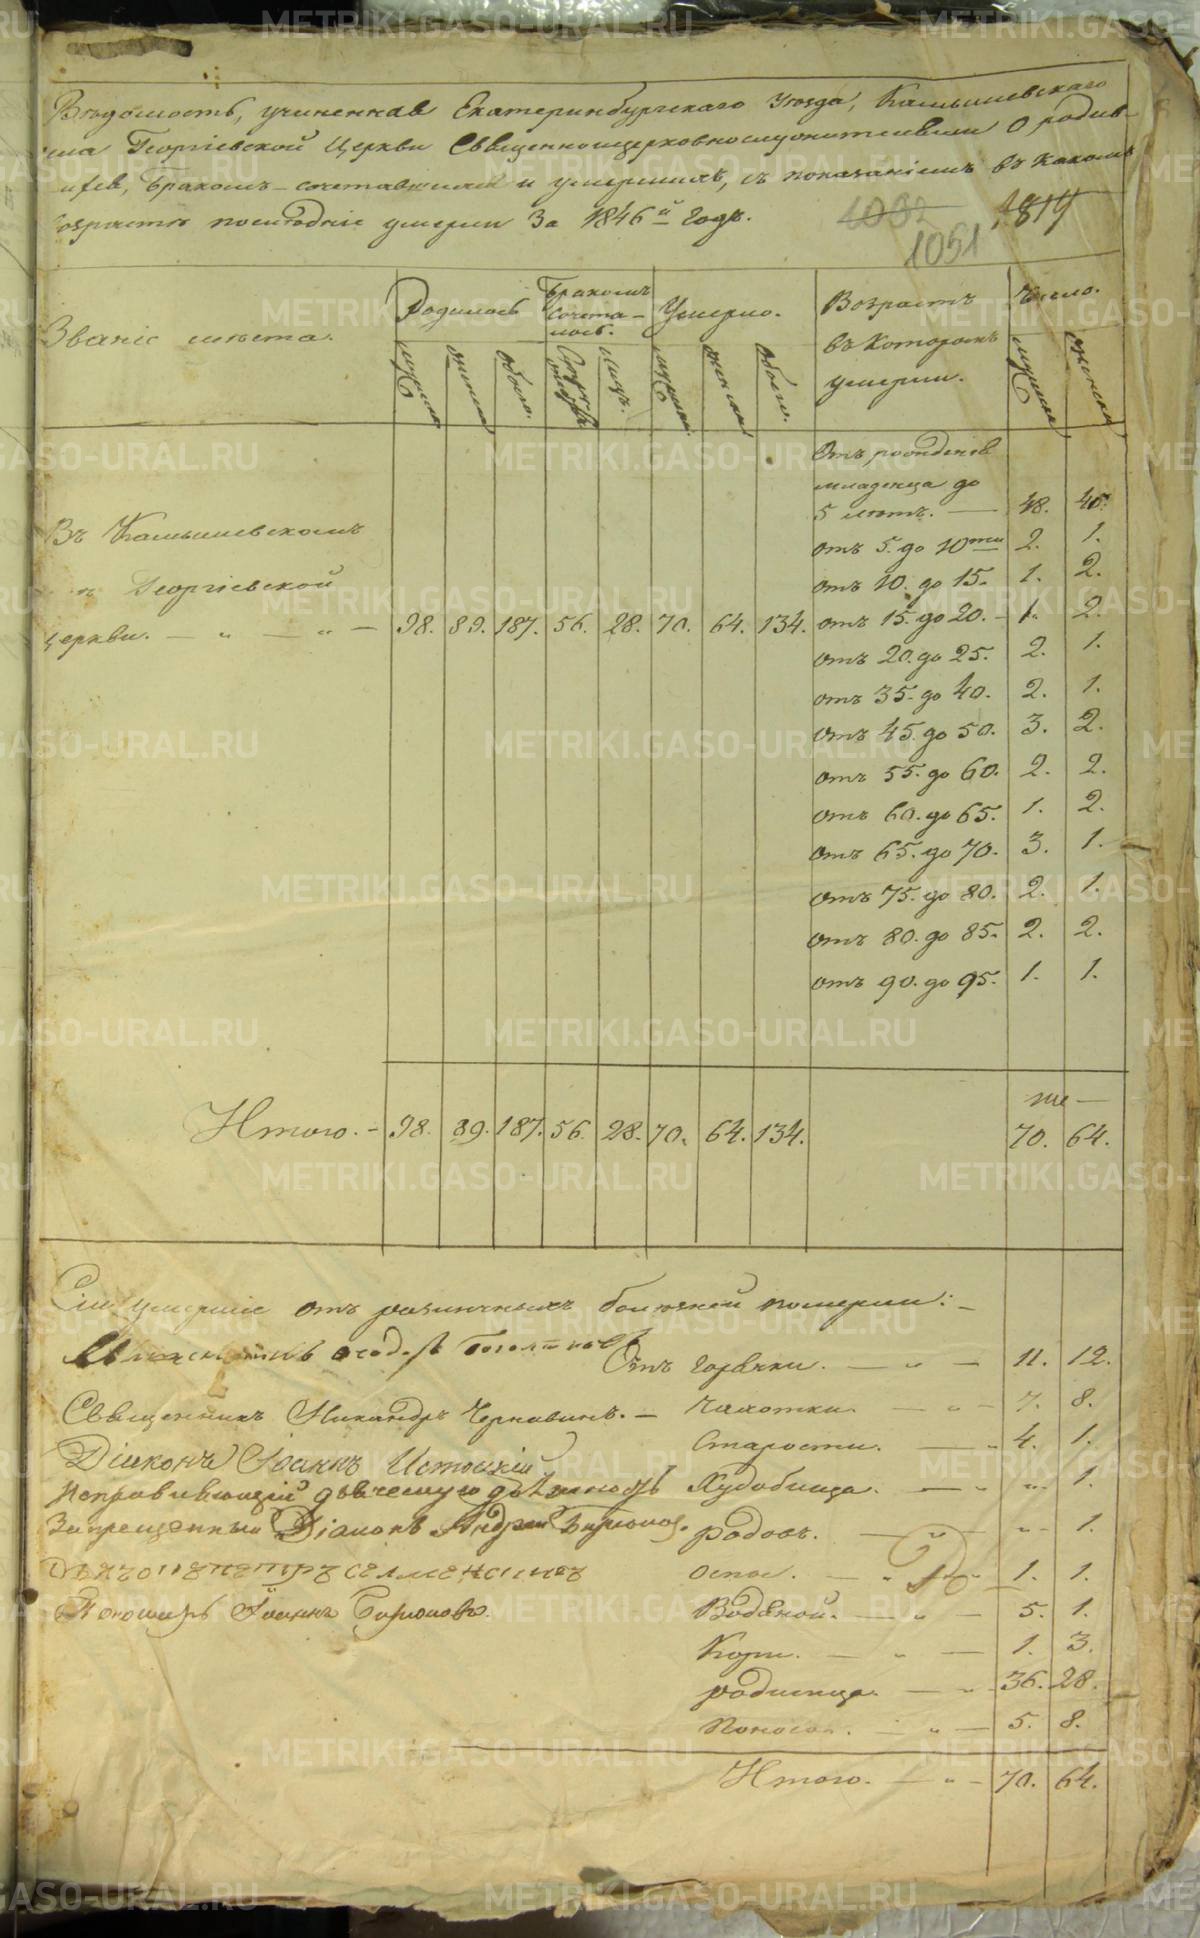 Вѣдомость, учиненная Екатеринбургскаго Уѣзда, Камышевскаго
села Георгіевской Церкви Священноцерковнослужителями О родив-
шихся, Бракомъ-сочетавшихся и умершихъ, съ показаніемъ въ какомъ
возрастѣ послѣдніе умерли За 1846й Годъ.
1032
1051
1819
Званіе мѣста.
Родилось
Бракомъ
сочета-
лось.
Умерло.
Возрастъ
въ Которомъ
умерли.
Число.
мужеска
женска
обоего.
Лицъ.
мужеска.
женска
Обоего.
мужеска
женска
Отъ рожденія
младенца до
5 лѣтъ. — 48. 46.
Въ Камышевскомъ
Георгіевской
церкви. — „ — „ — 98. 89. 187. 56. 28. 70. 64. 134.
отъ 5. до 10ти 2. 1.
отъ 10. до 15. 1. 2.
отъ 15. до 20. - 1. 2.
отъ 20. до 25. 2. 1.
отъ 35. до 40. 2. 1.
отъ 45. до 50. 3. 2.
отъ 55. до 60. 2. 2.
отъ 60. до 65. 1. 2.
отъ 65. до 70. 3. 1.
отъ 75. до 80. 2. 1.
отъ 80. до 85. 2. 2.
отъ 90. до 95. 1. 1.
Итого. - 98. 89. 187. 56. 28. 70. 64. 134. 70. 64.
Сіи умершіе отъ различныхъ болѣзней померли: -
Отъ Горячки. — „ — 11. 12.
Священникъ Никандръ Чернавинъ. —
Чахотки. — „ — 7. 8.
Старости. — „ 4. 1.
Діаконъ Іоаннъ Истокскій.
Исправляющій дьяческую должность
Худобища. — „ „ 1.
Запрещенный Діаконъ Андрей Бирюковъ.
родовъ. — „ — „ - 1.
Оспы. — „ — 1. 1.
Пономарь Іоаннъ Бирюковъ.
Водяной. — „ — 5. 1.
Кори. — „ — 1. 3.
родимца. — „ - 36. 28.
Поноса. — „ — 5. 8.
Итого. — „ - 70. 64.
METRIKI.GASO-URAL.RU